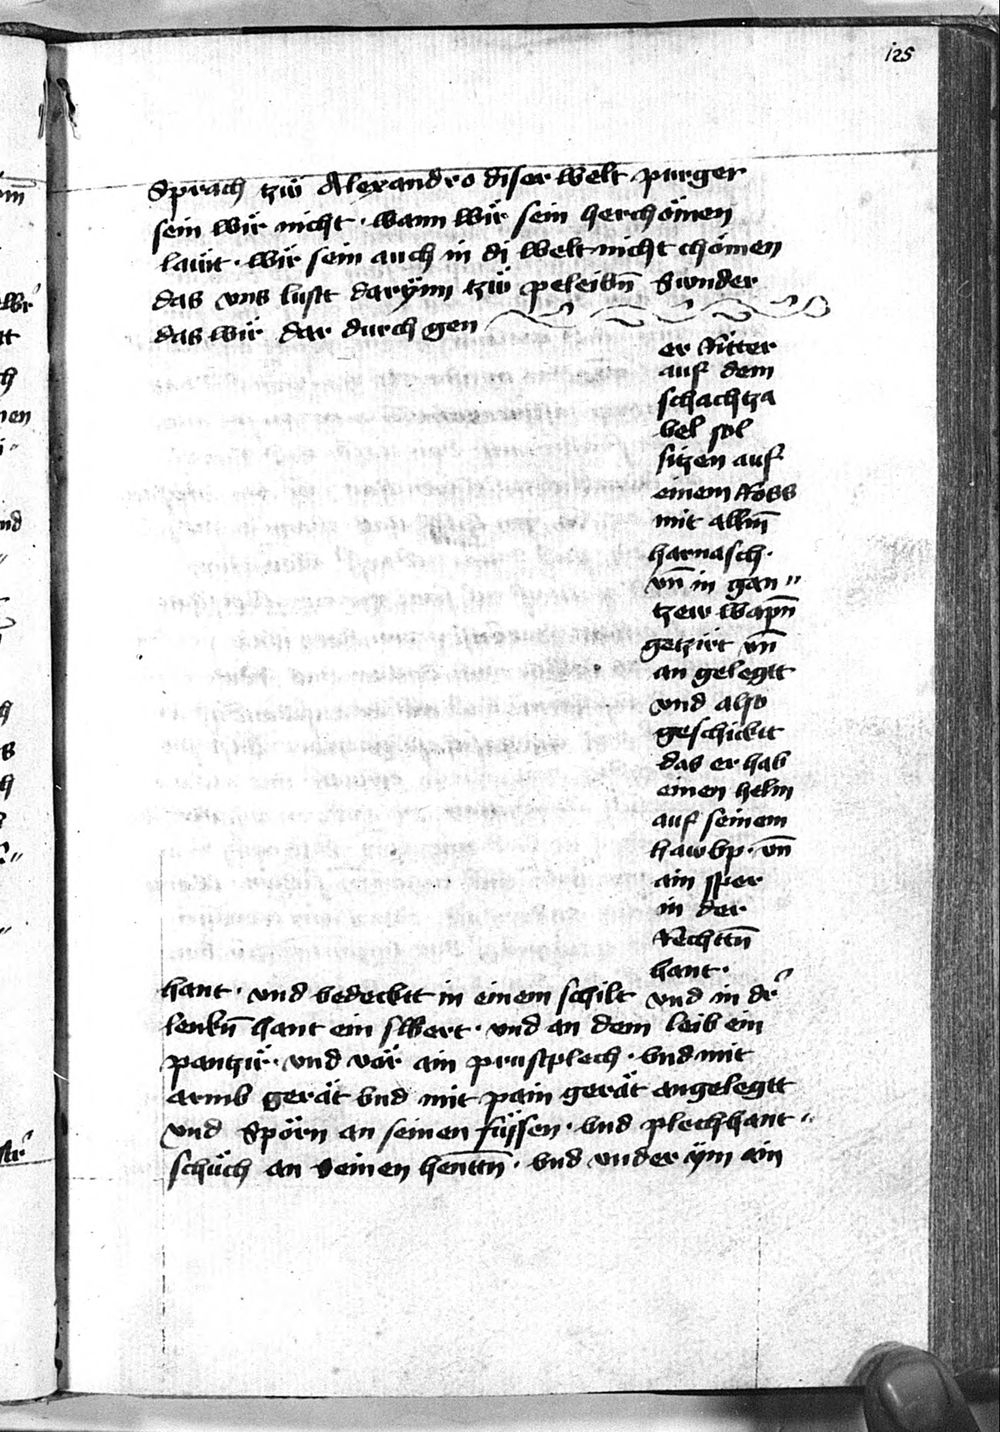 125
Sprach tzw̎ Alexandro diser welt purger
sein wir nicht · wann wir sein herchömen
läwt · wir sein auch in di welt nicht chömen
das vns lustt darÿnn tzw̎ peleibn̄ Sunder
das wir dar durch gen
er Ritter
auf dem
schachtza
bel sol
sitzen auf
einem Ross
mit allm̄
harnasch ·
vn̄ in gan〃
tzew wapn̄
getzirt vn̄
an gelegtt
vnd also
geschicktt
das er hab
einen helm
auf seinem
hawbp · vn̄
ain sper
in der
Rechttn̄
hant ·
hant · vnd bedecktt in einem schilt vnd in dr̉
lenkn̄ hant ein swert · vnd an dem leib ein
pantzir̈ · vnd vör ain prustplech · vnd mit
armb gerät vnd mit pain gerät angelegtt
vnd Spörn an seinen füssen · vnd plechhant〃
schüch an seinen henttn̄ · vnd vnder ÿm ain